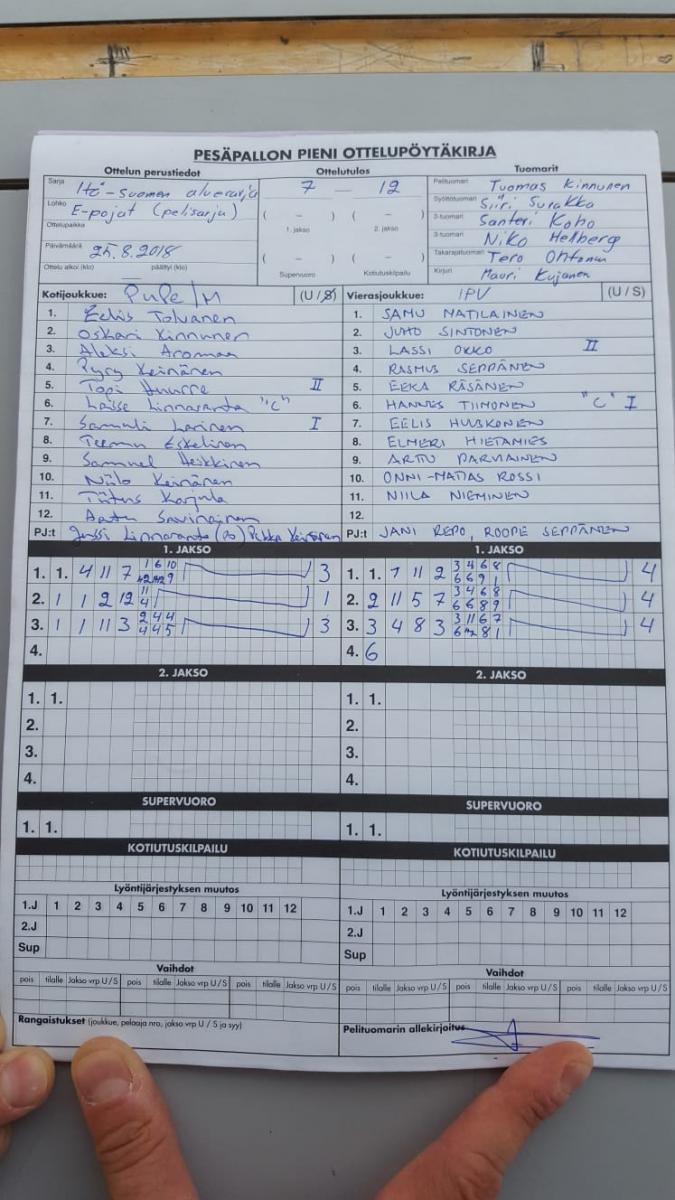 PESÄPALLON PIENI OTTELUPÖYTÄKIRJA
Ottelun perustiedot
Ottelutulos
Tuomarit
Sarja Itä-Suomen aluesarja
Lohko E-pojat (pelisarja)
Ottelupaikka
Päivämäärä 25.8.2018
Ottelu alkoi (klo) päättyi (klo)
7 — 12
( – ) ( – )
1. jakso 2. jakso
( – ) ( – )
Supervuoro Kotiutuskilpailu
Pelituomari Tuomas Kinnunen
Syöttötuomari Siiri Surakka
2-tuomari Santeri Koho
3-tuomari Niko Hellberg
Takarajatuomari Tero Ohtonen
Kirjuri Mauri Kujanen
Kotijoukkue: PuPe/M (U/S)
1. Eelis Tolvanen
2. Oskari Kinnunen
3. Aleksi Aroman
4. Pyry Keinänen
5. Topi Huurre II
6. Lasse Linnaranta "C"
7. Samuli Larinen I
8. Teemu Eskelinen
9. Samuel Heikkinen
10. Niilo Keinänen
11. Titus Karjula
12. Aatu Savinainen
PJ:t Jussi Linnaranta (po) Pekka Keinänen
Vierasjoukkue: IPV (U/S)
1. SAMU MATILAINEN
2. JUHO SINTONEN
3. LASSI OKKO II
4. RASMUS SEPPÄNEN
5. EEKA RÄSÄNEN
6. HANNES TIIMONEN "C" I
7. EELIS HUUSKONEN
8. ELMERI HIETAMIES
9. ARTTU PARVIAINEN
10. ONNI-MATIAS ROSSI
11. NIILA NIEMINEN
12.
PJ:t JANI REPO, ROOPE SEPPÄNEN
1. JAKSO
1. 1. 4 11 7 1 6 10 3
2. 1 1 2 12 11 4 1
3. 1 1 11 3 2 4 4 4 4 5 3
4.
1. JAKSO
1. 1. 7 11 2 3 4 6 8 6 6 9 1 4
2. 2 11 5 7 3 4 6 8 6 6 8 9 4
3. 3 4 8 3 3 11 6 7 4
4. 6
2. JAKSO
1. 1.
2.
3.
4.
2. JAKSO
1. 1.
2.
3.
4.
SUPERVUORO
1. 1.
SUPERVUORO
1. 1.
KOTIUTUSKILPAILU
KOTIUTUSKILPAILU
Lyöntijärjestyksen muutos
1.J 1 2 3 4 5 6 7 8 9 10 11 12
2.J
Sup
Lyöntijärjestyksen muutos
1.J 1 2 3 4 5 6 7 8 9 10 11 12
2.J
Sup
Vaihdot
pois tilalle Jakso vrp U/S pois tilalle Jakso vrp U/S pois tilalle Jakso vrp U/S
Vaihdot
pois tilalle Jakso vrp U/S pois tilalle Jakso vrp U/S pois tilalle Jakso vrp U/S
Rangaistukset (joukkue, pelaaja nro, jakso vrp U / S ja syy)
Pelituomarin allekirjoitus